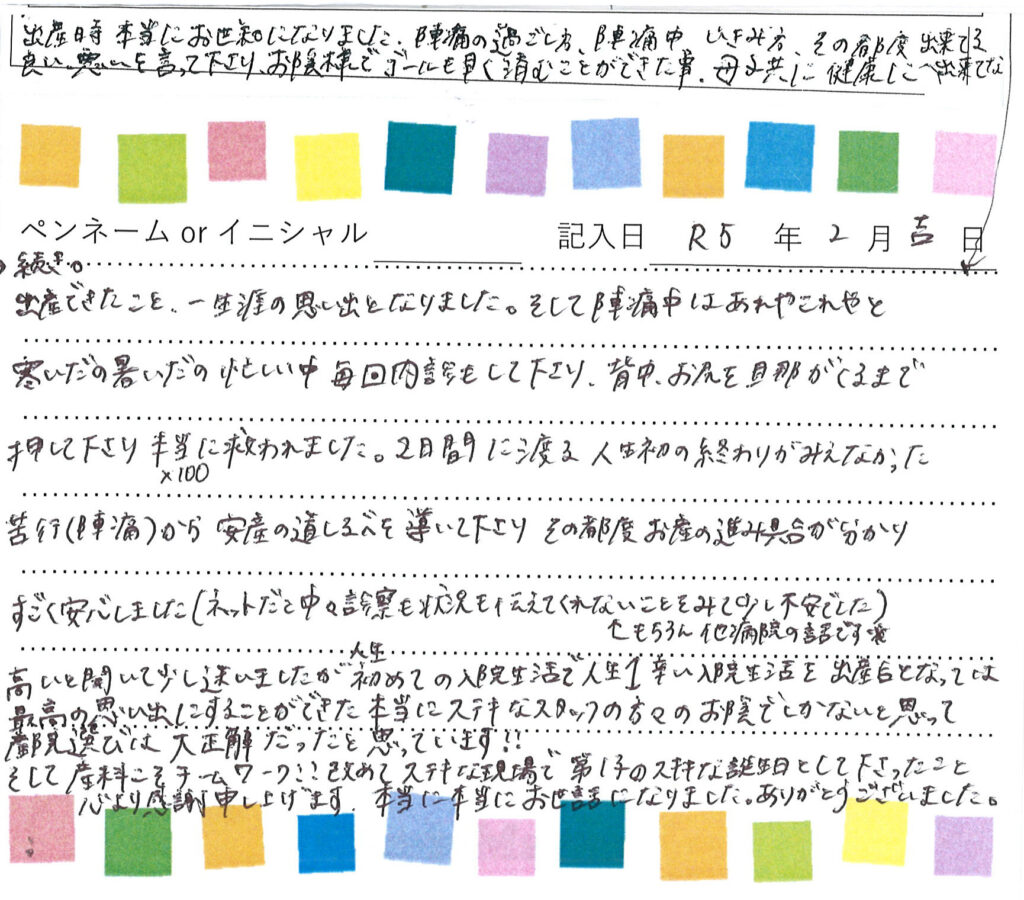 出産時 本当にお世話になりました。陣痛の過ごし方、陣痛中 いきみ方、その都度 出来てる
良い、悪いを言って下さり、お陰様でゴールも早く済むことができた事。母子共に健康に出来てな
ペンネーム or イニシャル
記入日 R5 年 2 月 吉 日
続き。
出産できたこと、一生涯の思い出となりました。そして陣痛中はあれやこれやと
寒いだの暑いだの 忙しい中 毎回内診もして下さり、背中、お尻を旦那がくるまで
押して下さり 本当に救われました。2日間に渡る 人生初の終わりがみえなかった
×100
苦行(陣痛)から 安産の道しるべを導いて下さり その都度 お産の進み具合が分かり
すごく安心しました(ネットだと中々診察も状況も伝えてくれないことをみて少し不安でした)
↑もちろん 他病院の話です※
人生
高いと聞いて少し迷いましたが 初めての入院生活で人生1 辛い入院生活を 出産台となっては
最高の思い出にすることができた 本当にステキなスタッフの方々のお陰でしかないと思って
産院選びは 大正解だったと思っています!!
そして 産科こそチームワーク!! 改めて ステキな現場で 第1子のステキな誕生日として下さったこと
心より感謝申し上げます。本当に本当にお世話になりました。ありがとうございました。